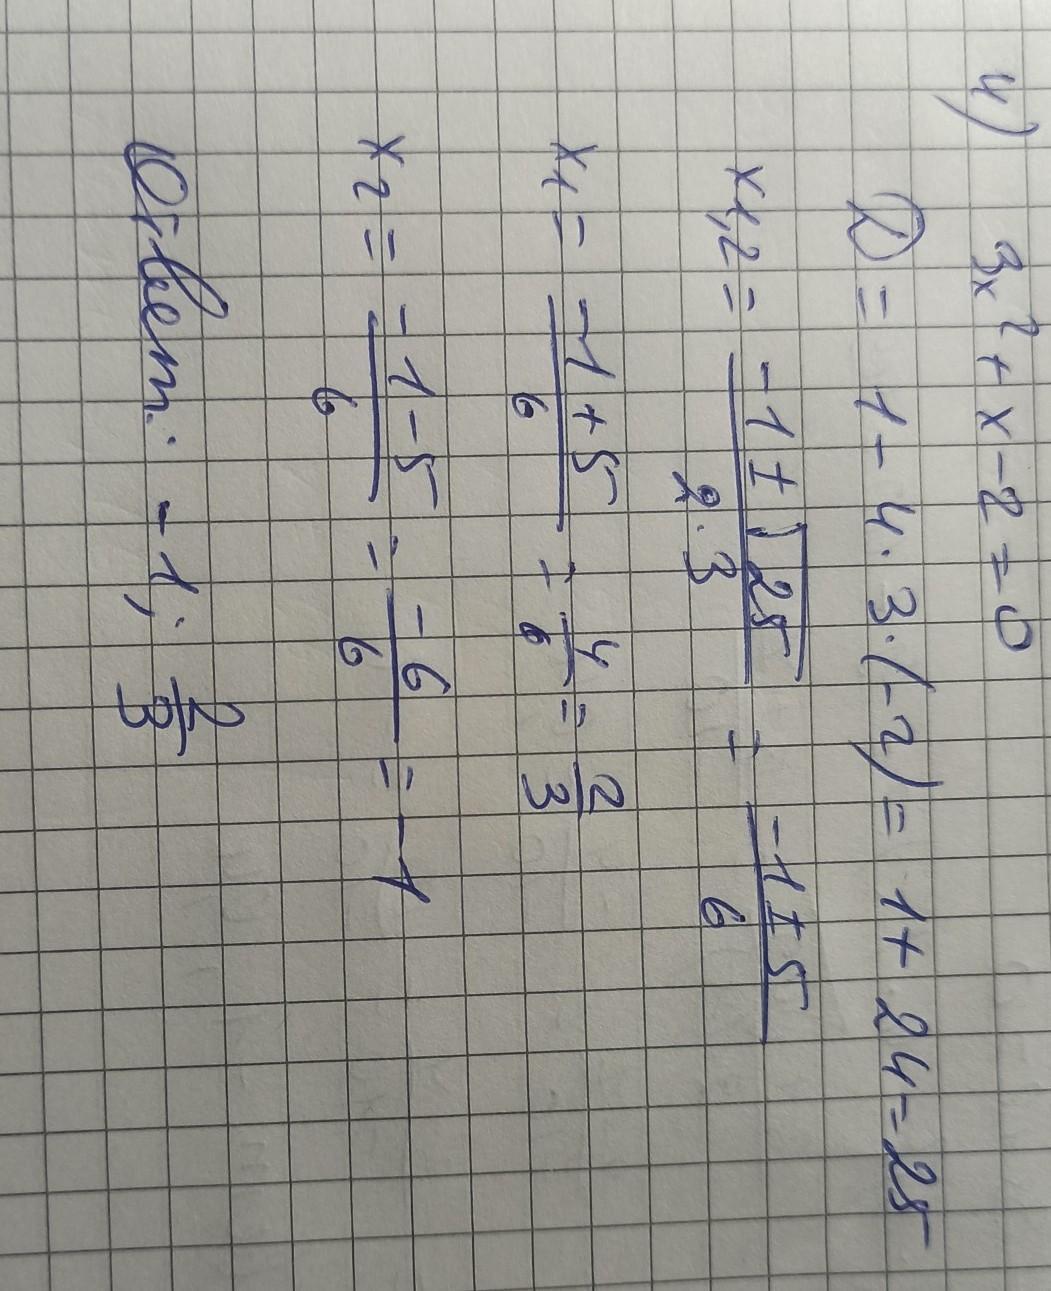 4) 3x² + x - 2 = 0
D = 1 - 4 · 3 · (-2) = 1 + 24 = 25
x1,2 = (-1 ± √25)/(2 · 3) = (-1 ± 5)/6
x1 = (-1 + 5)/6 = 4/6 = 2/3
x2 = (-1 - 5)/6 = -6/6 = -1
Ответ: -1; 2/3